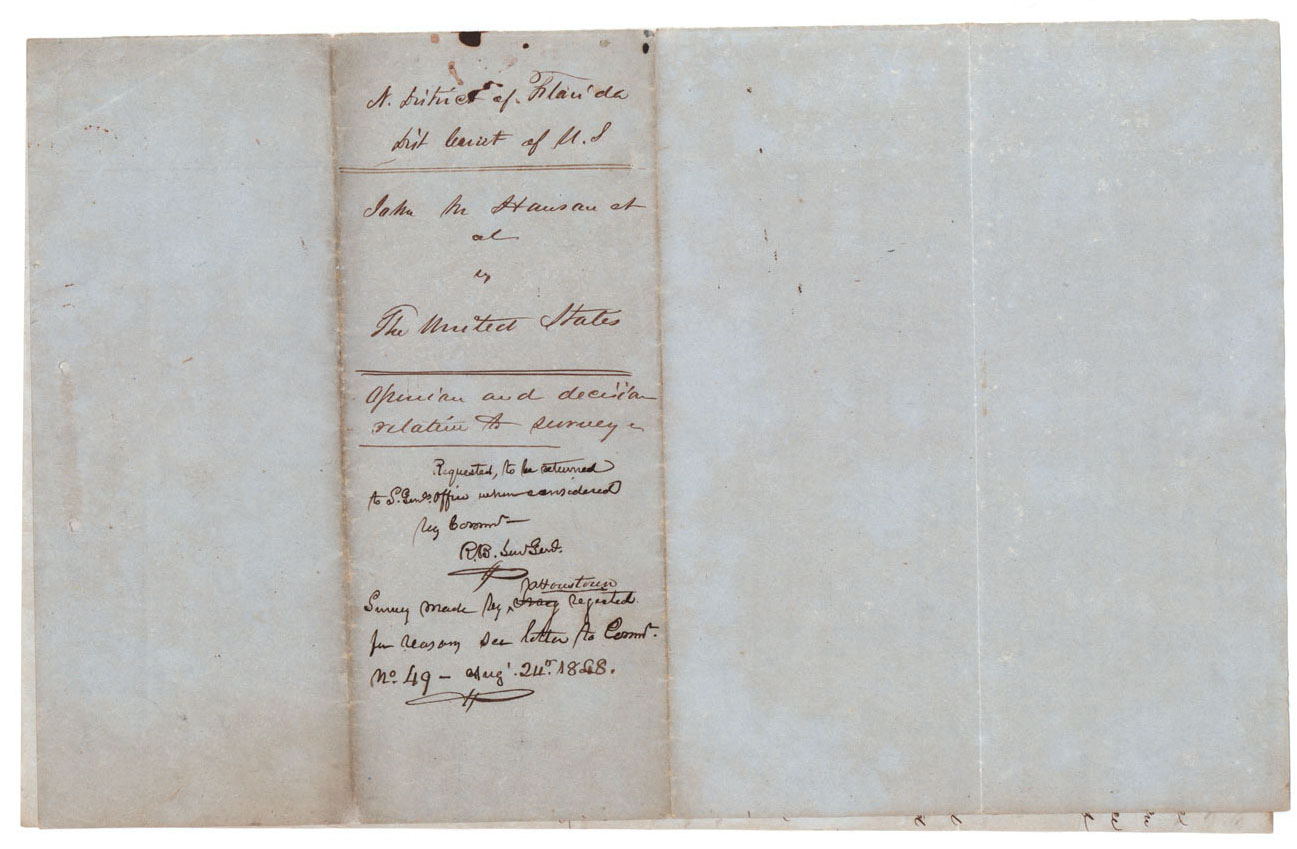 N. District of Florida
Dist Court of U.S
John M Hanson et
al
vs
The United States
Opinion and decision
relative to survey
Requested, to be returned
to S. Genls. Office when considered
by Commr.
R.B. Sur Genl.
Houstoun
Survey made by rejected
for reasons see letter to Commr.
No. 49 – Aug'. 24th. 1848.